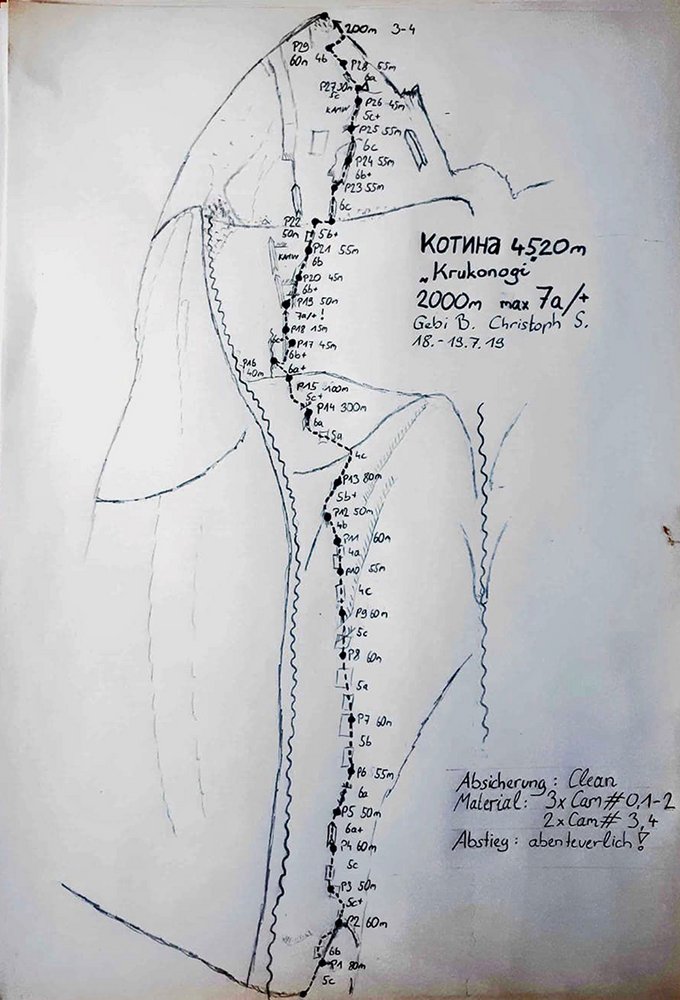 200m 3-4
P29
60m 4b
P28 55m
6a
P27 30m
5c
P26 45m
KAMIN
5c+
P25 55m
6c
P24 55m
6b+
P23 55m
6c
P22
50m 5b+
P21 55m
KAMIN
6b
P20 45m
6b+
P19 50m
7a/+!
P18 15m
P17 45m
6b+
P16
40m
6a+
P15 100m
5c+
P14 300m
6a
5a
4c
P13 80m
5b+
P12 50m
4b
P11 60m
4a
P10 55m
4c
P9 60m
5c
P8 60m
5a
P7 60m
5b
P6 55m
6a
P5 50m
6a+
P4 60m
5c
P3 50m
5c+
P2 60m
6b
P1 80m
5c
КОТИНА 4520m
„Krukonogi"
2000m max 7a/+
Gebi B. Christoph S.
18.-19.7.19
Absicherung: Clean
Material: 3x Cam# 0,1-2
2x Cam# 3,4
Abstieg: abenteuerlich!